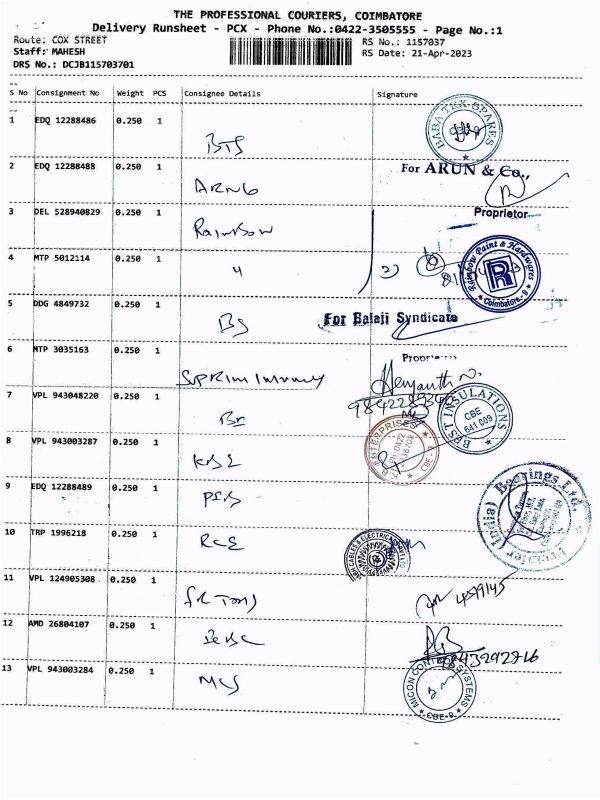 THE PROFESSIONAL COURIERS, COIMBATORE
Delivery Runsheet - PCX - Phone No.:0422-3505555 - Page No.:1
Route: COX STREET
RS No.: 1157037
Staff: MAHESH
RS Date: 21-Apr-2023
DRS No.: DCJB115703701
S No Consignment No Weight PCS Consignee Details Signature
1 EDQ 12288486 0.250 1 BTS BABA TEX SPARES
2 EDQ 12288488 0.250 1 For ARUN & Co.,
Proprietor
3 DEL 528940829 0.250 1 Rainbow
4 MTP 5012114 0.250 1 4 Rainbow Paint & Hardwares Coimbatore-9
5 DDG 4849732 0.250 1 BS For Balaji Syndicate
6 MTP 3035163 0.250 1
7 VPL 943048220 0.250 1 BEST INSULATIONS CBE 641 009
8 VPL 943003287 0.250 1 KBE ENTERPRISES
9 EDQ 12288489 0.250 1 Premier (India) Bearings Ltd.
10 TRP 1996218 0.250 1 RCE CABLES & ELECTRICALS
11 VPL 124905308 0.250 1
12 AMD 26804107 0.250 1
13 VPL 943003284 0.250 1 MCS MICON CONTROL SYSTEMS CBE-9